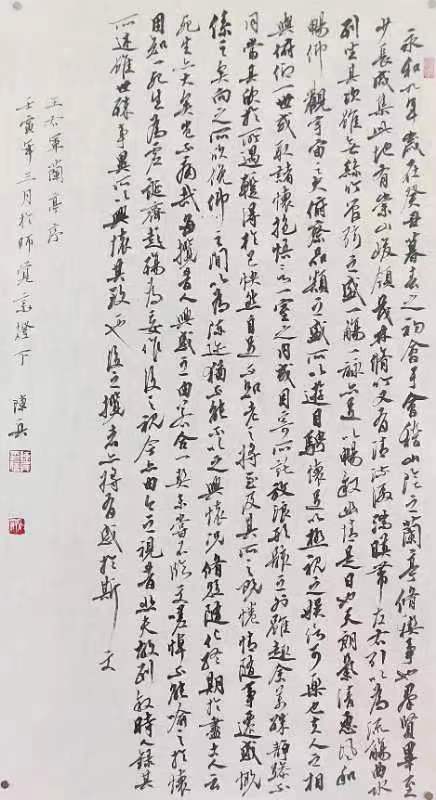 永和九年歲在癸丑暮春之初會于會稽山陰之蘭亭脩禊事也群賢畢至
少長咸集此地有崇山峻領茂林脩竹又有清流激湍映帶左右引以為流觴曲水
列坐其次雖無絲竹管弦之盛一觴一詠亦足以暢敘幽情是日也天朗氣清惠風和
暢仰觀宇宙之大俯察品類之盛所以遊目騁懷足以極視之娛信可樂也夫人之相
與俯仰一世或取諸懷抱悟言一室之內或因寄所託放浪形骸之外雖趣舍萬殊靜躁不
同當其欣於所遇輒得於己快然自足不知老之將至及其所之既惓情隨事遷感慨
係之矣向之所欣俛仰之間以為陳迹猶不能不以之興懷況脩短隨化終期於盡古人云
死生亦大矣豈不痛哉每攬昔人興感之由若合一契未嘗不臨文嗟悼不能喻之於懷
固知一死生為虛誕齊彭殤為妄作後之視今亦由今之視昔悲夫故列敘時人錄其
所述雖世殊事異所以興懷其致一也後之攬者亦將有感於斯文
王右軍蘭亭序
壬寅年三月於師寬堂燈下 陳兵